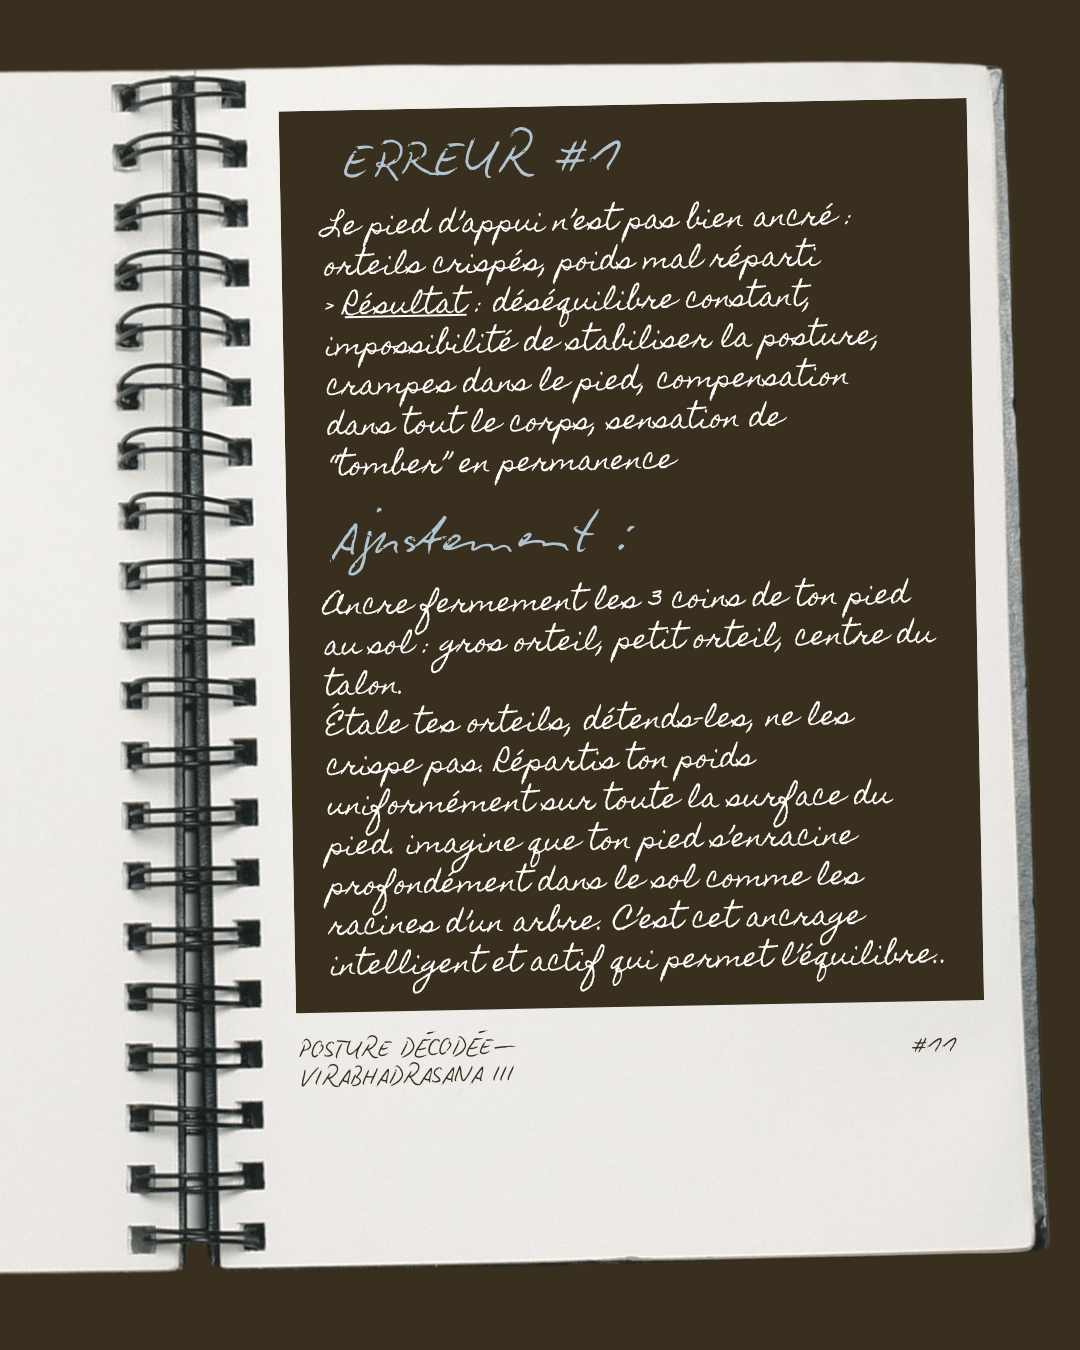 ERREUR #1
Le pied d'appui n'est pas bien ancré :
orteils crispés, poids mal réparti
> Résultat : déséquilibre constant,
impossibilité de stabiliser la posture,
crampes dans le pied, compensation
dans tout le corps, sensation de
"tomber" en permanence
Ajustement :
Ancre fermement les 3 coins de ton pied
au sol : gros orteil, petit orteil, centre du
talon.
Étale tes orteils, détends-les, ne les
crispe pas. Répartis ton poids
uniformément sur toute la surface du
pied. imagine que ton pied s'enracine
profondément dans le sol comme les
racines d'un arbre. C'est cet ancrage
intelligent et actif qui permet l'équilibre..
POSTURE DÉCODÉE—
VIRABHADRASANA III
#11